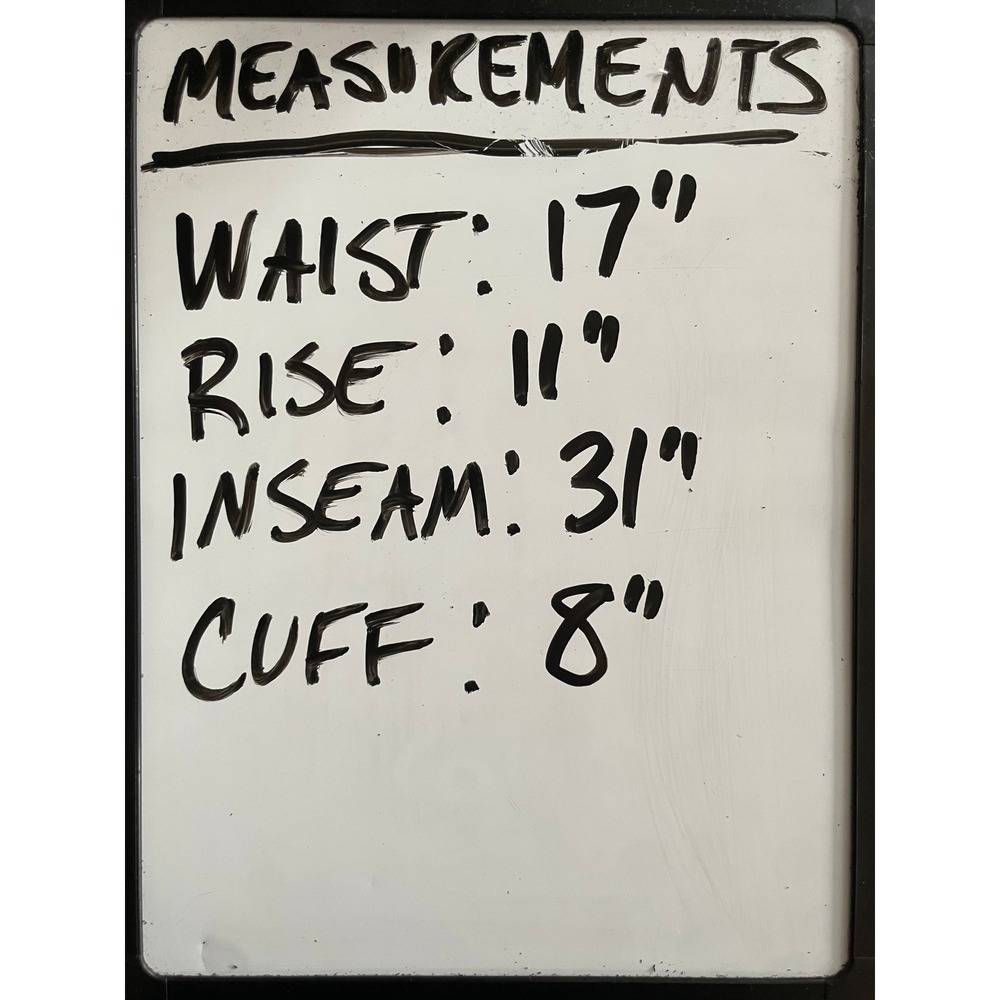 MEASUREMENTS
WAIST: 17"
RISE: 11"
INSEAM: 31"
CUFF: 8"